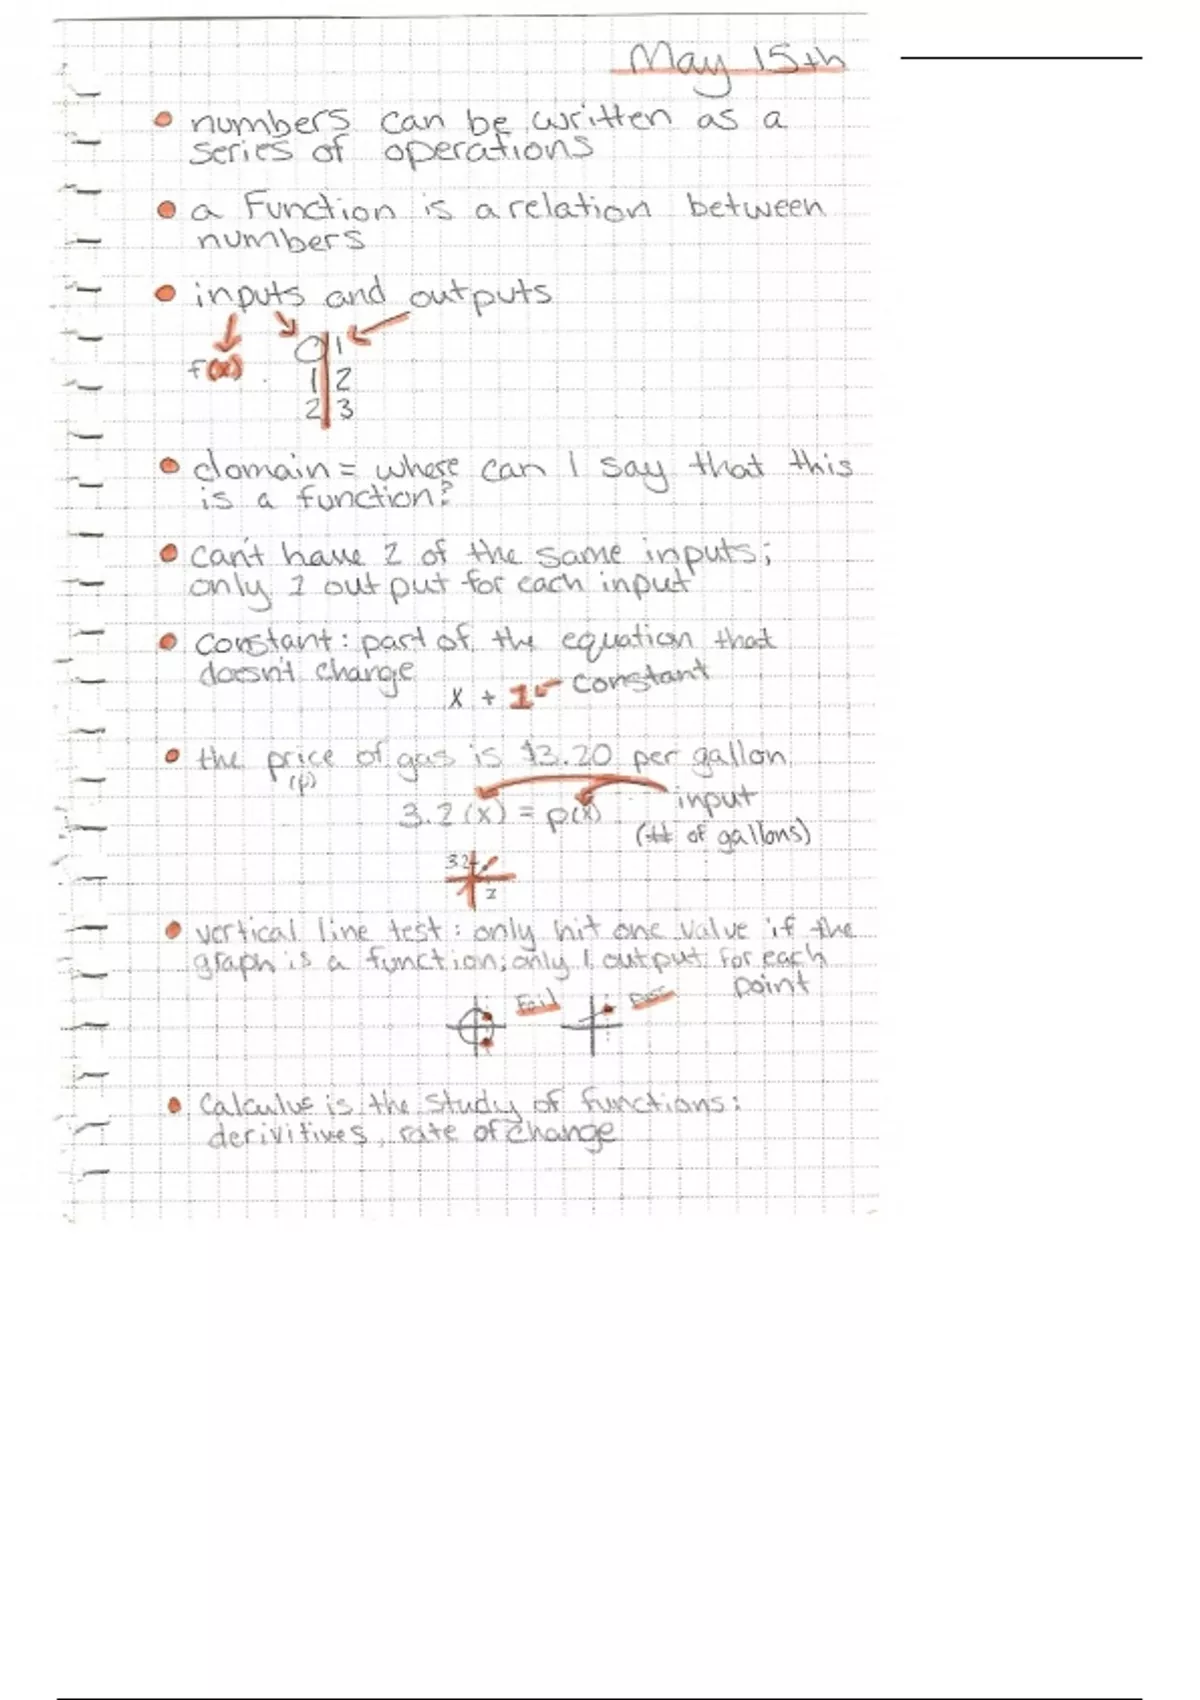 May 15th
numbers can be written as a
series of operations
a Function is a relation between
numbers
inputs and outputs
f(x)
0 1
1 2
2 3
domain = where can I say that this
is a function?
can't have 2 of the same inputs;
only 1 output for each input
constant: part of the equation that
doesn't change
x + 1 constant
the price of gas is $3.20 per gallon
(p)
3.2(x) = p(x) input
(# of gallons)
vertical line test: only hit one value if the
graph is a function, only 1 output for each
point
Fail
calculus is the study of functions:
derivitives, rate of change